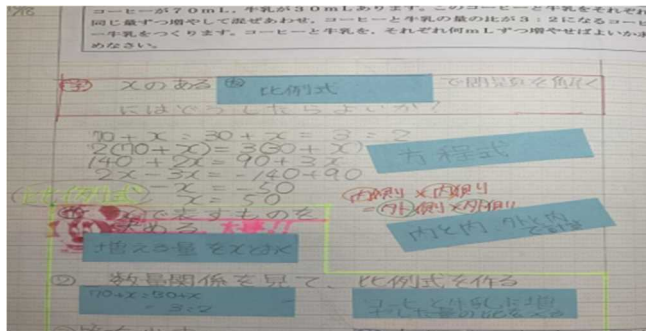 コーヒーが70mL, 牛乳が30mLあります。このコーヒーと牛乳をそれぞれ
同じ量ずつ増やして混ぜあわせ、コーヒーと牛乳の量の比が3：2になるコーヒ
ー牛乳をつくります。コーヒーと牛乳を、それぞれ何mLずつ増やせばよいか求
めなさい。
xのある 比例式 で問題を解く
にはどうしたらよいか？
70+x:30+x=3:2
2(70+x)=3(30+x)
140+2x=90+3x
方程式
2x-3x=-140+90
-x=-50
x=50
比例式
内側×内側
=外側×外側
xで表すものを
決める。大事!!
内と内、外と内
増える量をxとおく
② 数量関係を見て、比例式を作る
70+x:30+x
=3:2
コーヒーと牛乳を増